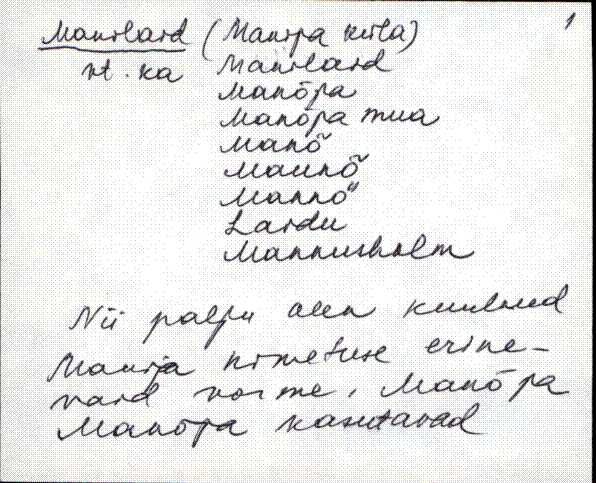 1
Manilaid (Manija küla)
vt. ka Manilaid
Manõja
Manõja mua
Manõ
Maunõ
Mannõ
Laidu
Mannusholm
Nii palju olen kuulnud
Manija nimetuse erine-
vaid vorme. Manõja
Manõja kasutavad